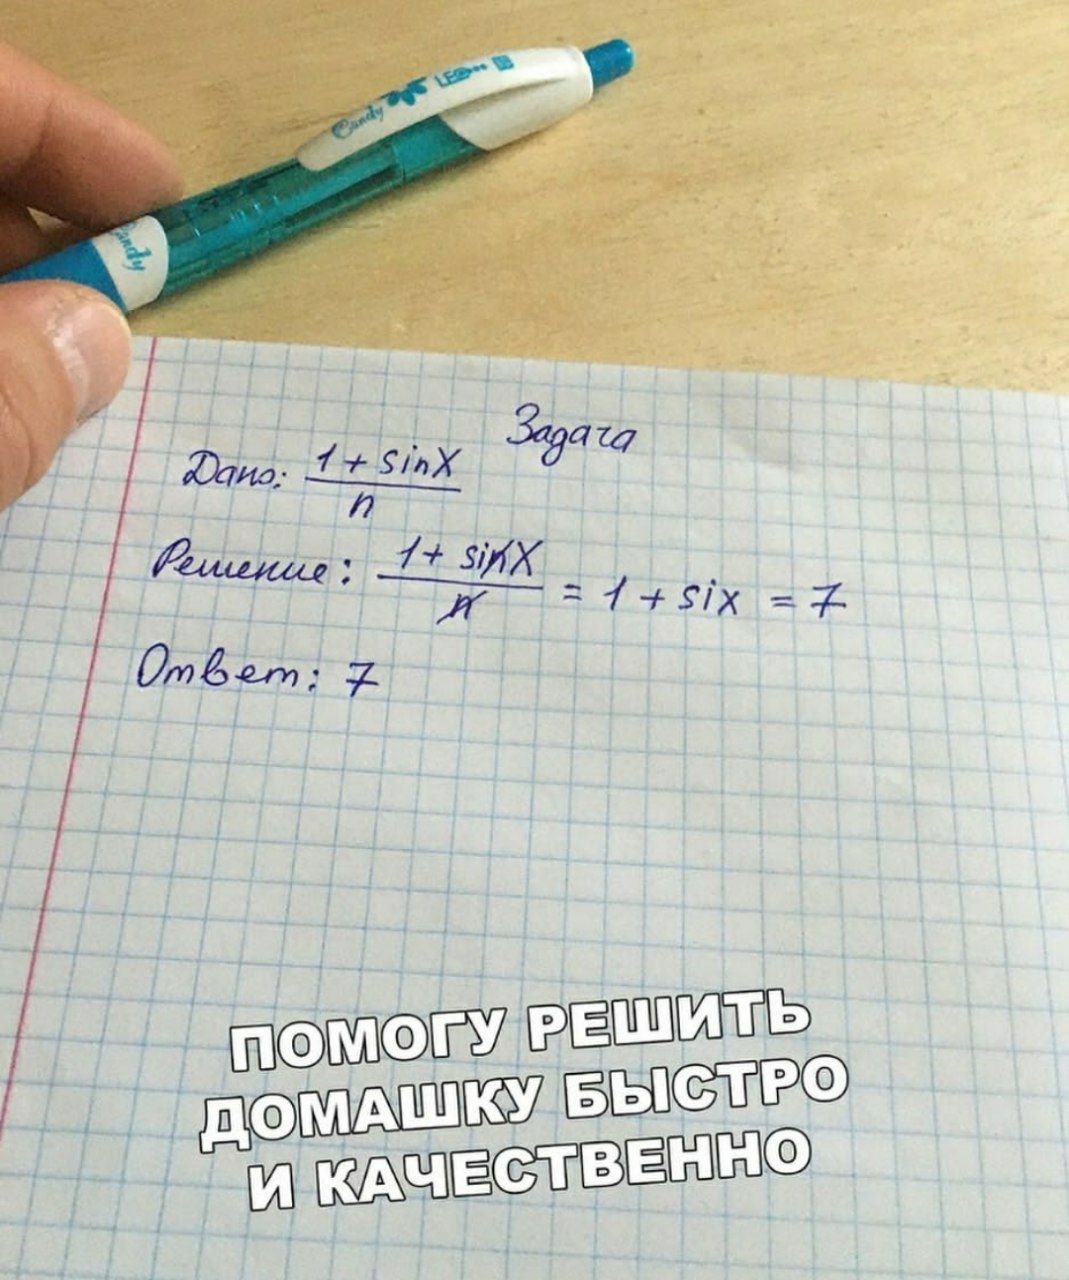 Candy
Candy
Задача
Дано: 1 + sinX
n
Решение: 1 + sinX
n
= 1 + six = 7
Ответ: 7
ПОМОГУ РЕШИТЬ
ДОМАШКУ БЫСТРО
И КАЧЕСТВЕННО